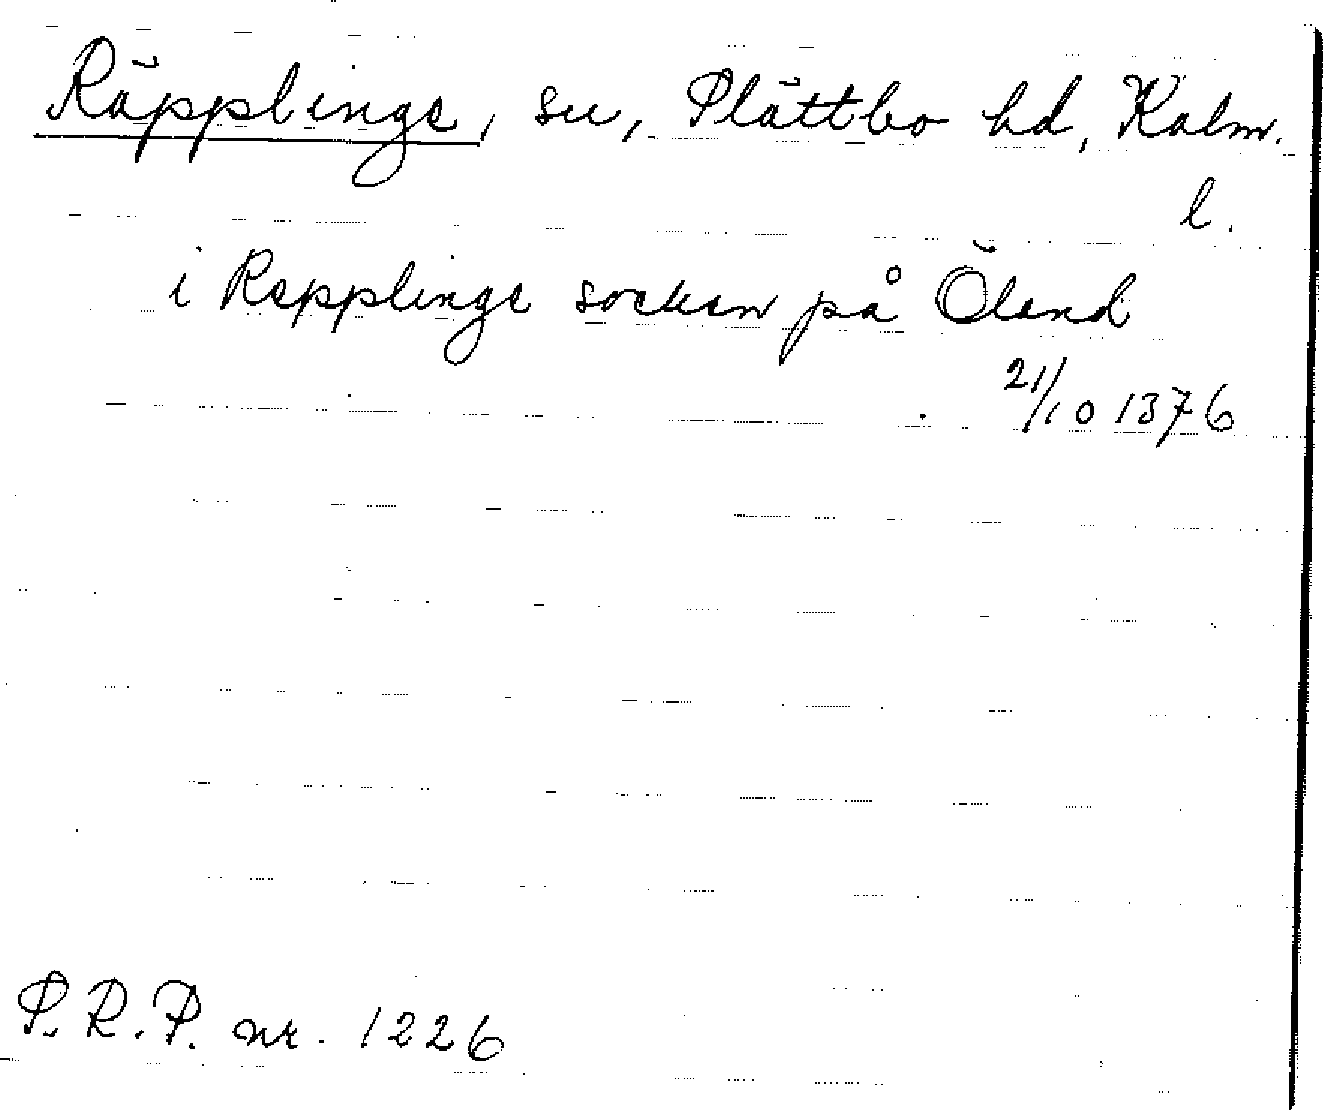 Räpplinge, sn, Slättbo hd, Kalm.
l.
i Repplinge socken på Öland
21/10 1376
P.R.P. nr. 1226